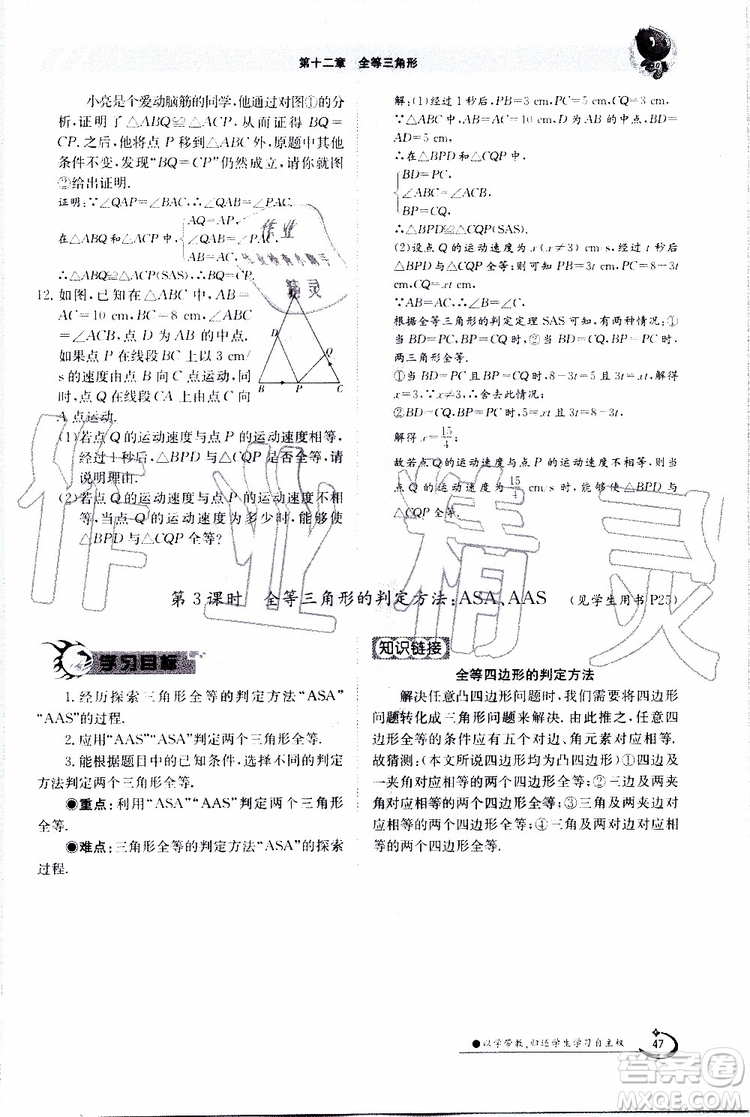 第十二章 全等三角形
小亮是个爱动脑筋的同学,他通过对图①的分
析,证明了△ABQ≌△ACP,从而得到 BQ=
CP.之后,他又将点 P 移到△ABC 之外,原题其他
条件不变,发现“BQ=CP”仍然成立,请你就图
②给出证明.
证明:∵∠QAP=∠BAC,∴∠QAB=∠PAC.
在△ABQ和△ACP中,
AQ=AP,
∠QAB=∠PAC,
AB=AC,
∴△ABQ≌△ACP(SAS).∴BQ=CP.
12. 如图,已知△ABC 中,AB=
AC=10 cm,BC=8 cm,点 D 为 AB 的中点.
如果点 P 在线段 BC 上以 3 cm/
s 的速度由点 B 向 C 点运动,同
时,点 Q 在线段 CA 上由点 C 向
A 点运动.
(1)若点 Q 的运动速度与点 P 的运动速度相等,
经过 1 秒后,△BPD 与△CQP 是否全等?请
说明理由.
(2)若点 Q 的运动速度与点 P 的运动速度不相
等,当点 Q 的运动速度为多少时,能够使
△BPD 与△CQP 全等?
A
D
Q
B
P
C
解:(1)经过 1 秒后,PB=3 cm,PC=5 cm,CQ=3 cm.
∵△ABC中,AB=AC,∴∠B=∠C,点D为AB的中点,
AD=5 cm.
∴在△BPD和△CQP中,
BD=PC,
∠ABC=∠ACB,
BP=CQ,
∴△BPD≌△CQP(SAS).
(2)设点 Q 的运动速度为 x(x≠3) cm/s,经过 t 秒后
△BPD≌△CQP,则BP=3t cm,PC=8-3t cm,CQ=xt cm.
∵AB=AC,∴∠B=∠C.
根据全等三角形的判定定理 SAS 可知,有两种情况:①
当BD=PC,BP=CQ时,②当BD=CQ,BP=PC时,
两三角形全等.
①当BD=PC且BP=CQ时,8-3t=5且3t=xt,解得
x=3.∵x≠3,∴舍去此情况;
②BD=CQ,BP=PC时,5=xt且3t=8-3t,
解得x=15/4.
故若点 Q 的运动速度与点 P 的运动速度不相等,则当
点 Q 的运动速度为 15/4 cm/s 时,能够使△BPD 与
△CQP 全等.
第 3 课时 全等三角形的判定方法:ASA、AAS (见学生用书 P25)
学习目标
1.经历探索三角形全等的判定方法“ASA”
“AAS”的过程.
2.应用“ASA”“AAS”判定两个三角形全等.
3.能根据题目中的已知条件,选择适当的判定
方法判定两个三角形全等.
●重点:利用“ASA”“AAS”判定两个三角形
全等.
●难点:三角形全等的判定方法“ASA”的探索
过程.
知识链接
全等四边形的判定方法
解决任意凸四边形问题时,我们需将四边形
问题转化成三角形问题来解决.由此推之,任意四
边形全等的条件应有五个对边、角元素对应相等.
故猜测:(本文所说均为凸四边形)①四边及
一夹角对应相等的两个四边形全等;②三边及两
夹角对应相等的两个四边形全等;③三角及三边
对应相等的两个四边形全等;④三角及两对边对应相
等的两个四边形全等.
●以学带教,归还学生学习自主权
47
作业精灵
答案圈